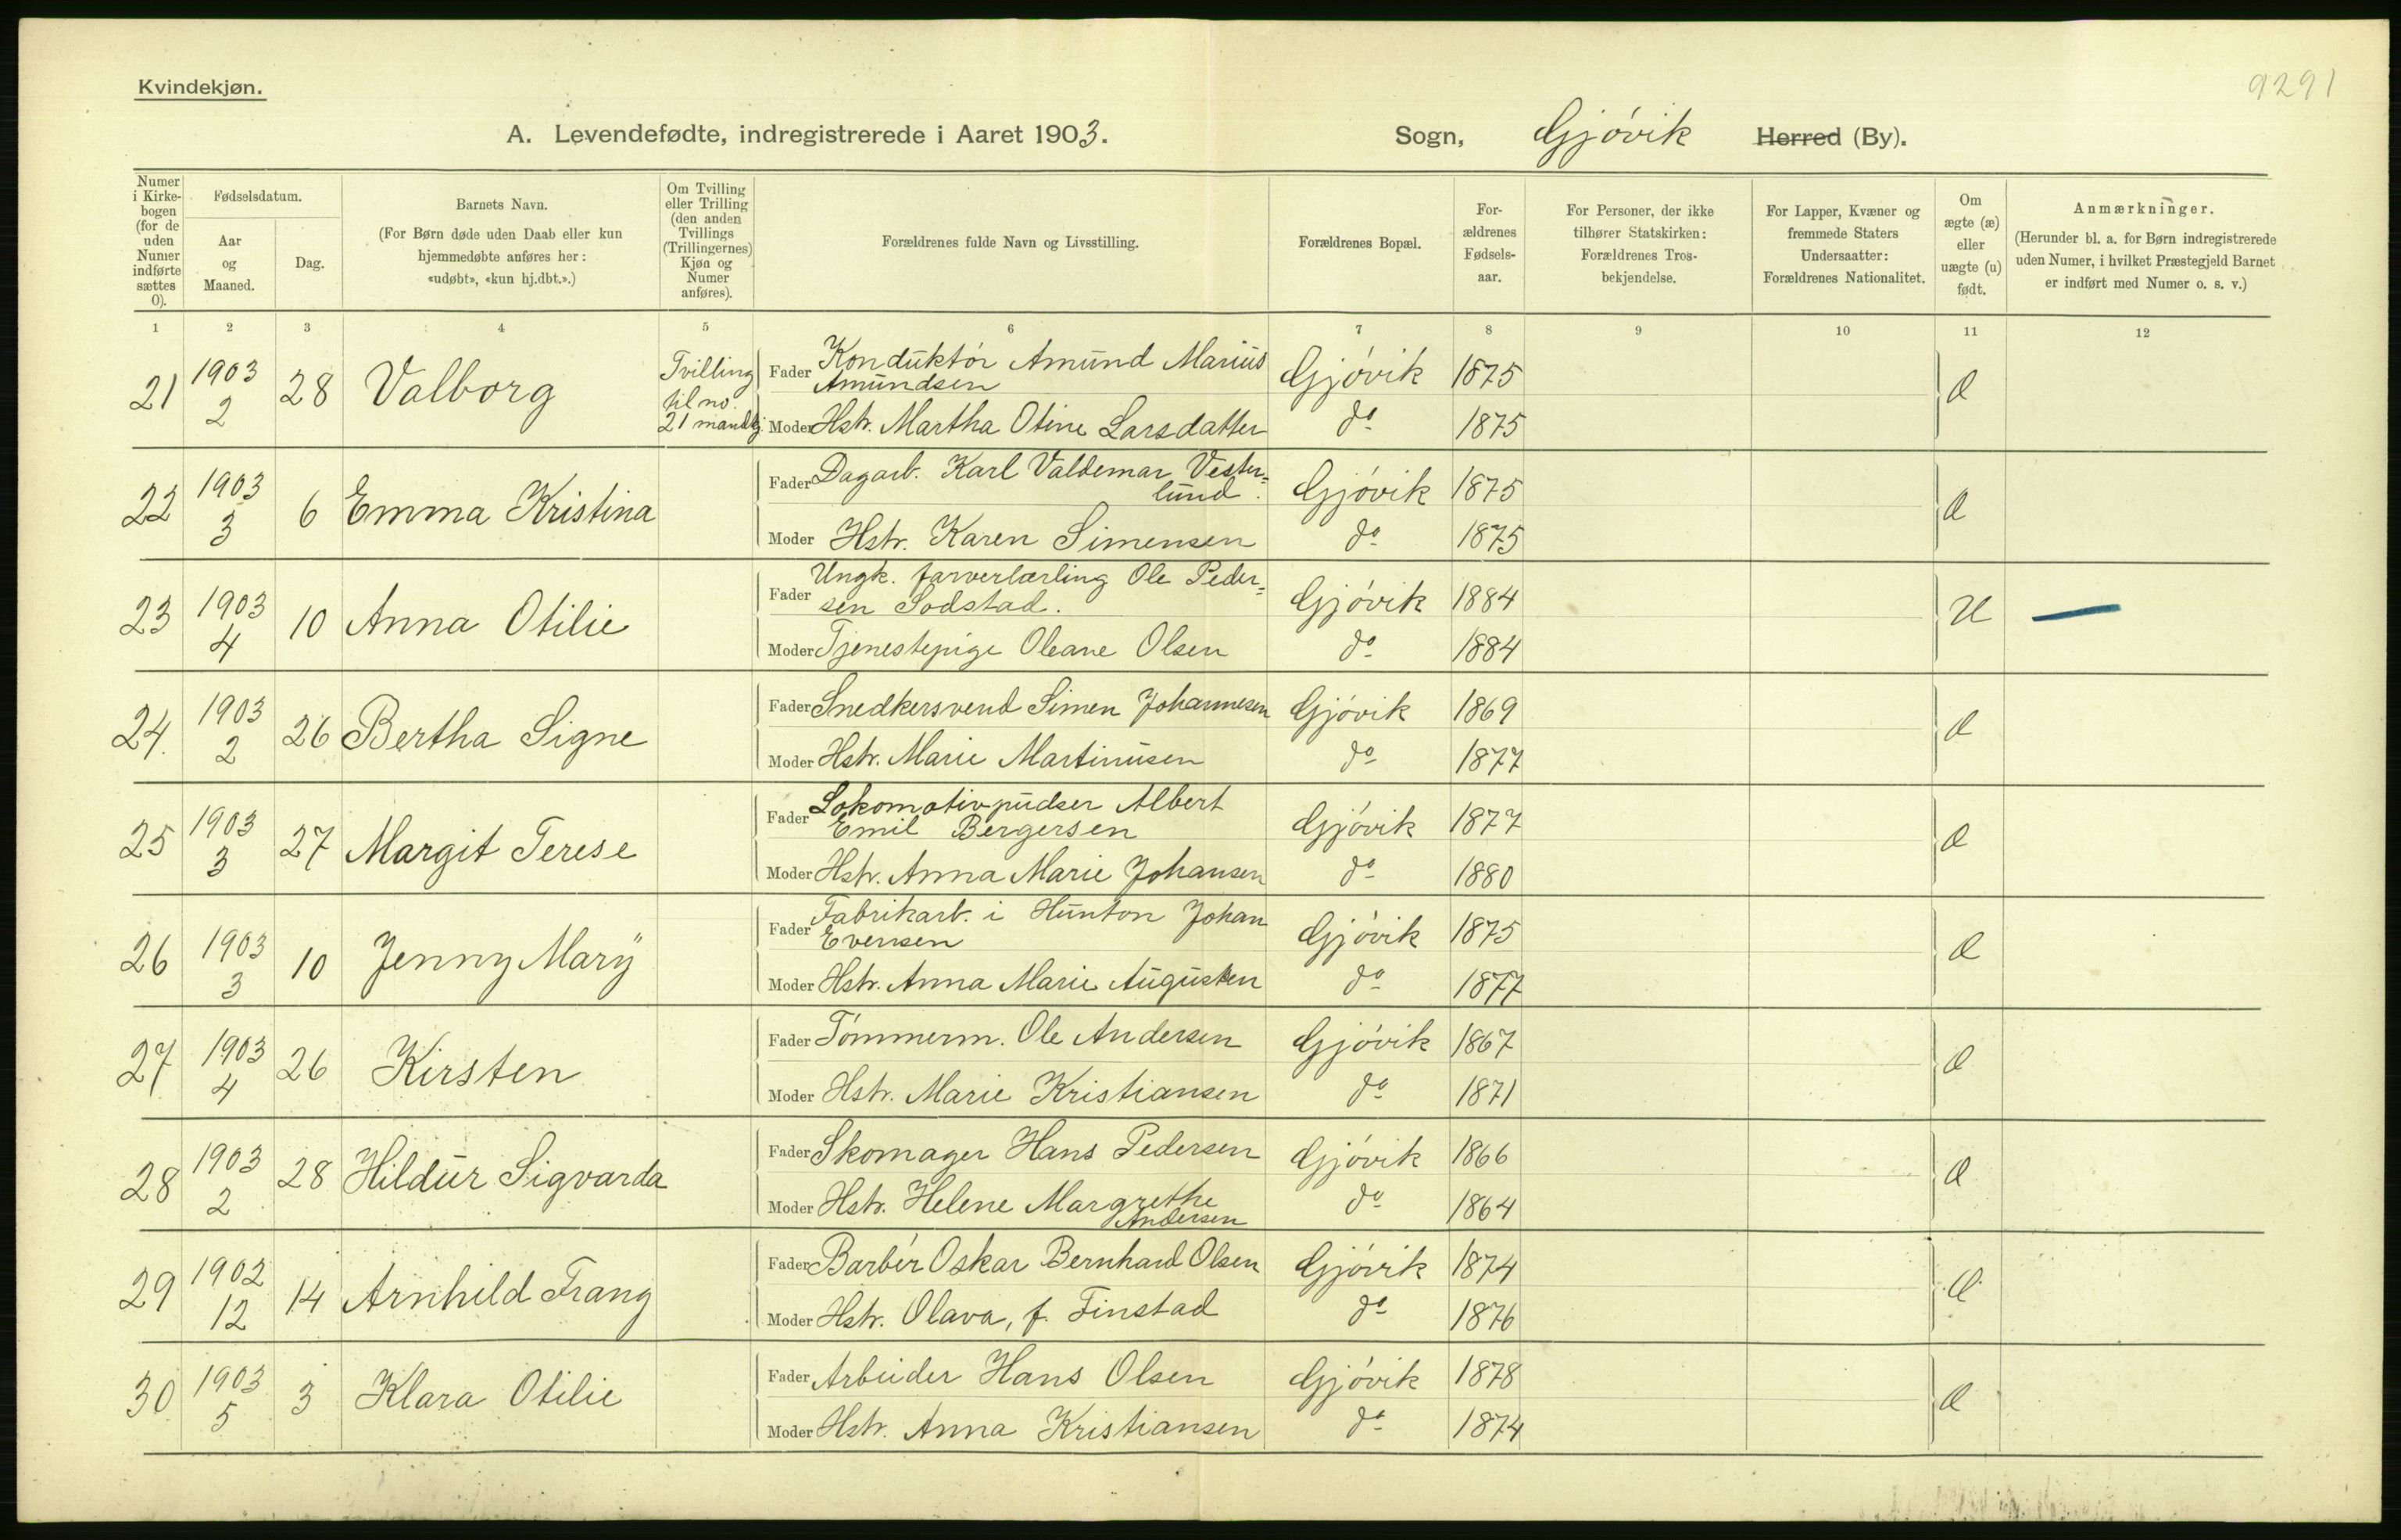 9291
Kvindekjøn.
A. Levendefødte, indregistrerede i Aaret 1903. Sogn, Gjøvik Herred (By).
Numer i Kirkebogen (for de uden Numer indførte sættes 0).
Fødselsdatum.
Aar og Maaned.
Dag.
Barnets Navn.
(For Børn døde uden Daab eller kun hjemmedøbte anføres her: «udøbt», «kun hj.dbt.».)
Om Tvilling eller Trilling (den anden Tvillings (Trillingernes) Kjøn og Numer anføres).
Forældrenes fulde Navn og Livsstilling.
Forældrenes Bopæl.
Forældrenes Fødselsaar.
For Personer, der ikke tilhører Statskirken: Forældrenes Trosbekjendelse.
For Lapper, Kvæner og fremmede Staters Undersaatter: Forældrenes Nationalitet.
Om ægte (æ) eller uægte (u) født.
Anmærkninger.
(Herunder bl. a. for Børn indregistrerede uden Numer, i hvilket Præstegjeld Barnet er indført med Numer o. s. v.)
1 2 3 4 5 6 7 8 9 10 11 12
21 1903 2 28 Valborg Tvilling til no. 21 mandkj.
Fader Konduktør Amund Marius Amundsen Gjøvik 1875 Æ
Moder Hstr. Martha Otine Larsdatter do 1875
22 1903 3 6 Emma Kristina
Fader Dagarb. Karl Valdemar Vester=
lund. Gjøvik 1875 Æ
Moder Hstr. Karen Simensen do 1875
23 1903 4 10 Anna Otilie
Fader Ungk. farverlærling Ole Peder=
sen Sodstad. Gjøvik 1884 U —
Moder Tjenestepige Oleane Olsen do 1884
24. 1903 2 26 Bertha Signe
Fader Snedkersvend Simen Johannesen Gjøvik 1869 Æ
Moder Hstr. Marie Martinusen do 1877
25 1903 3 27 Margit Terese
Fader Lokomotivpudser Albert
Emil Bergersen Gjøvik 1877 Æ
Moder Hstr. Anna Marie Johansen do 1880
26 1903 3 10 Jenny Mary
Fader Fabrikarb. i Hunton Johan
Evensen Gjøvik 1875 Æ
Moder Hstr. Anna Marie Augusten do 1877
27 1903 4 26 Kirsten
Fader Tømmerm. Ole Andersen Gjøvik 1867 Æ
Moder Hstr. Marie Kristiansen do 1871
28 1903 2 28 Hildur Sigvarda
Fader Skomager Hans Pedersen Gjøvik 1866 Æ
Moder Hstr. Helene Margrethe
Andersen do 1864
29 1902 12 14 Arnhild Frang
Fader Barbér Oskar Bernhard Olsen Gjøvik 1874 Æ
Moder Hstr. Olava, f. Finstad do 1876
30 1903 5 3 Klara Otilie
Fader Arbeider Hans Olsen Gjøvik 1878 Æ
Moder Hstr. Anna Kristiansen do 1874